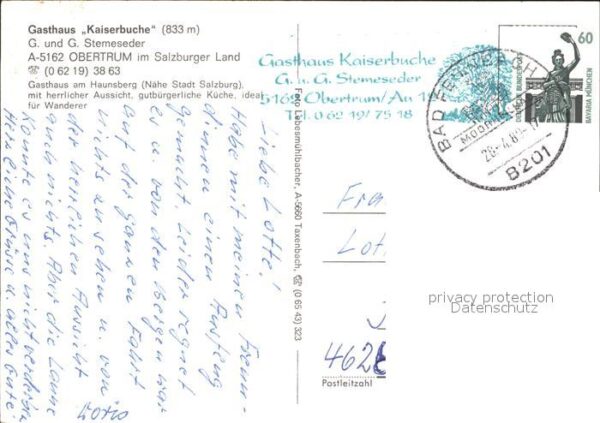 Gasthaus „Kaiserbuche" (833 m)
G. und G. Stemeseder
A-5162 OBERTRUM im Salzburger Land
☎ (0 62 19) 38 63
Gasthaus am Haunsberg (Nähe Stadt Salzburg),
mit herrlicher Aussicht, gutbürgerliche Küche, ideal
für Wanderer
Gasthaus Kaiserbuche
G. u. G. Stemeseder
5162 Obertrum/Au 10
Tel. 0 62 19/ 75 18
60
DEUTSCHE BUNDESPOST
BAVARIA MÜNCHEN
BAD FEILNBACH
B201
Foto Lebesmühlbacher, A-5660 Taxenbach, ☎ (0 65 43) 323
Liebe Lotte!
Habe mit meinen Freun-
dinnen einen Ausflug
gemacht. Leider regnet
es u. von den Bergen war
auf der ganzen Fahrt
nichts zu sehen u. von
der herrlichen Aussicht
auch nichts. Aber die Laune
konnte es uns nicht verderben
Herzliche Grüsse u. alles Gute!
Fra
Lot
462
Postleitzahl
privacy protection
Datenschutz